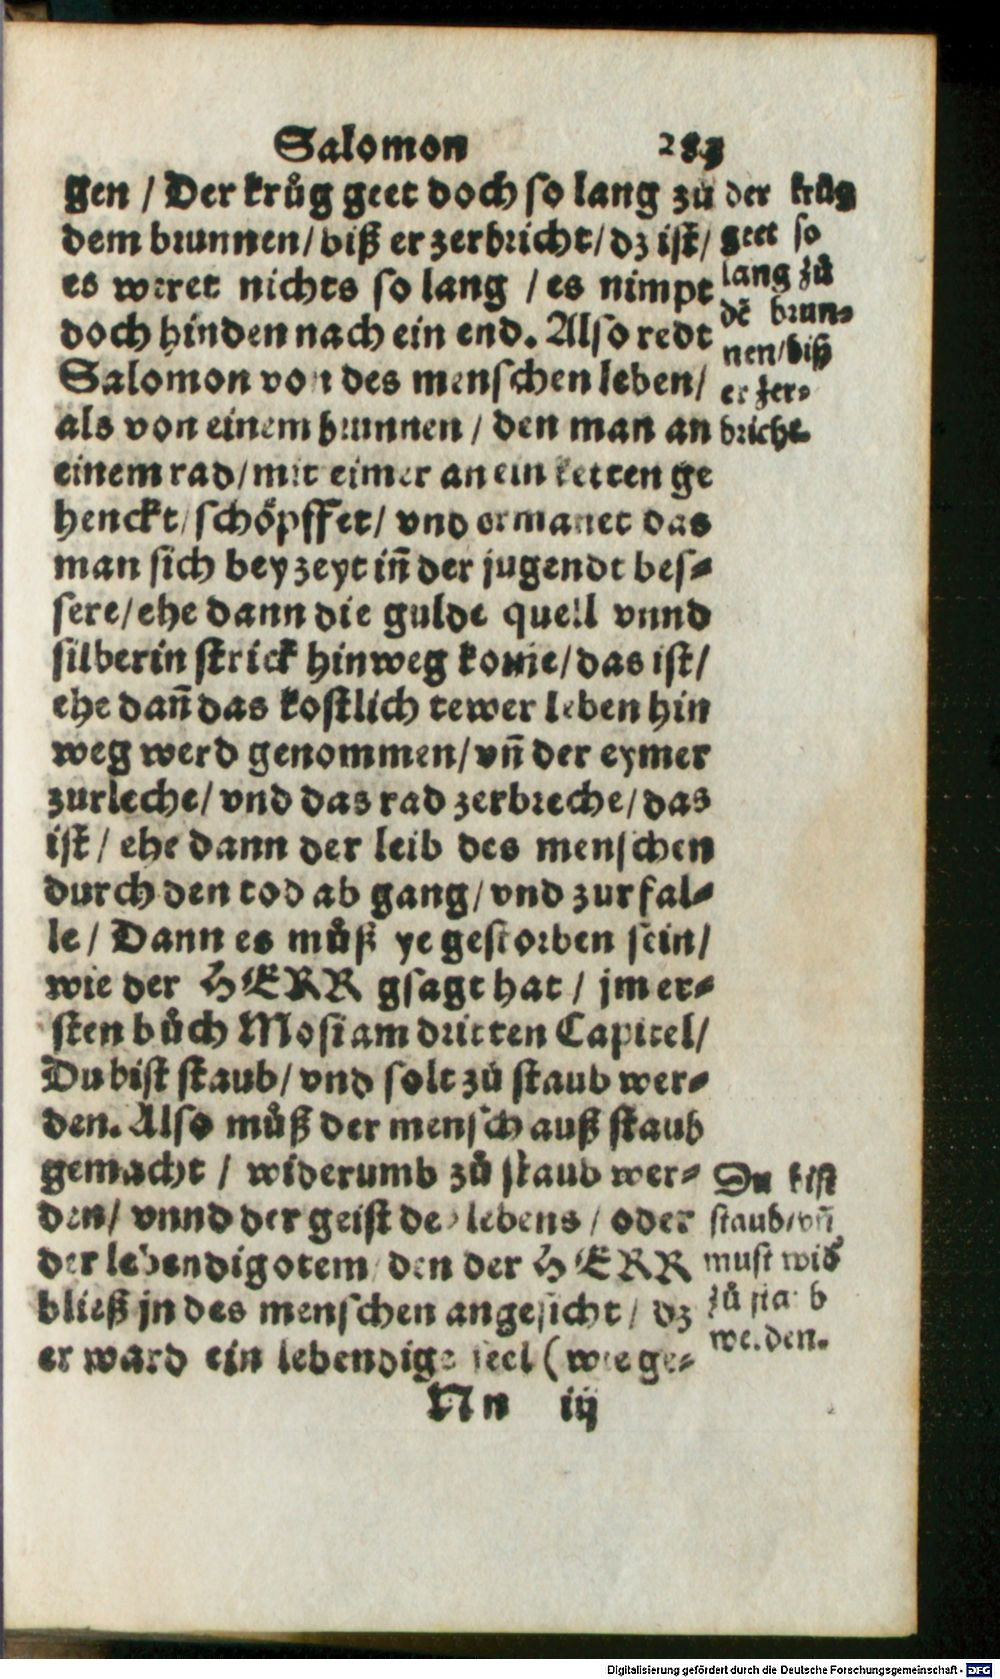 Salomon 283
gen / Der krůg geet doch so lang zů
dem brunnen / biß er zerbricht / dz ist /
es weret nichts so lang / es nimpt
doch hinden nach ein end. Also redt
Salomon von des menschen leben /
als von einem brunnen / den man an
einem rad / mit eimer an ein ketten ge
henckt / schöpffet / vnd ermanet das
man sich bey zeyt iñ der jugendt bes-
sere / ehe dann die gulde quell vnnd
silberin strick hinweg kome / das ist /
ehe dañ das kostlich tewer leben hin
weg werd genommen / vñ der eymer
zurleche / vnd das rad zerbreche / das
ist / ehe dann der leib des menschen
durch den tod ab gang / vnd zurfal-
le / Dann es můß ye gestorben sein /
wie der HERR gsagt hat / jm er-
sten bůch Mosi am dritten Capitel /
Du bist staub / vnd solt zů staub wer-
den. Also můß der mensch auß staub
gemacht / widerumb zů staub wer-
den / vnnd der geist des lebens / oder
der lebendig otem / den der HERR
bließ jn des menschen angesicht / dz
er ward ein lebendige seel (wie ge-
Nn iij
der krůg
geet so
lang zů
dē brun-
nen / biß
er zer-
bricht.
Du bist
staub / vñ
must wid
zů staub
werden.
Digitalisierung gefördert durch die Deutsche Forschungsgemeinschaft - DFG